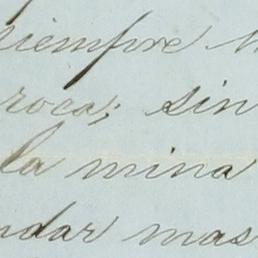 siempre
roca; sin
la mina
ndar mas